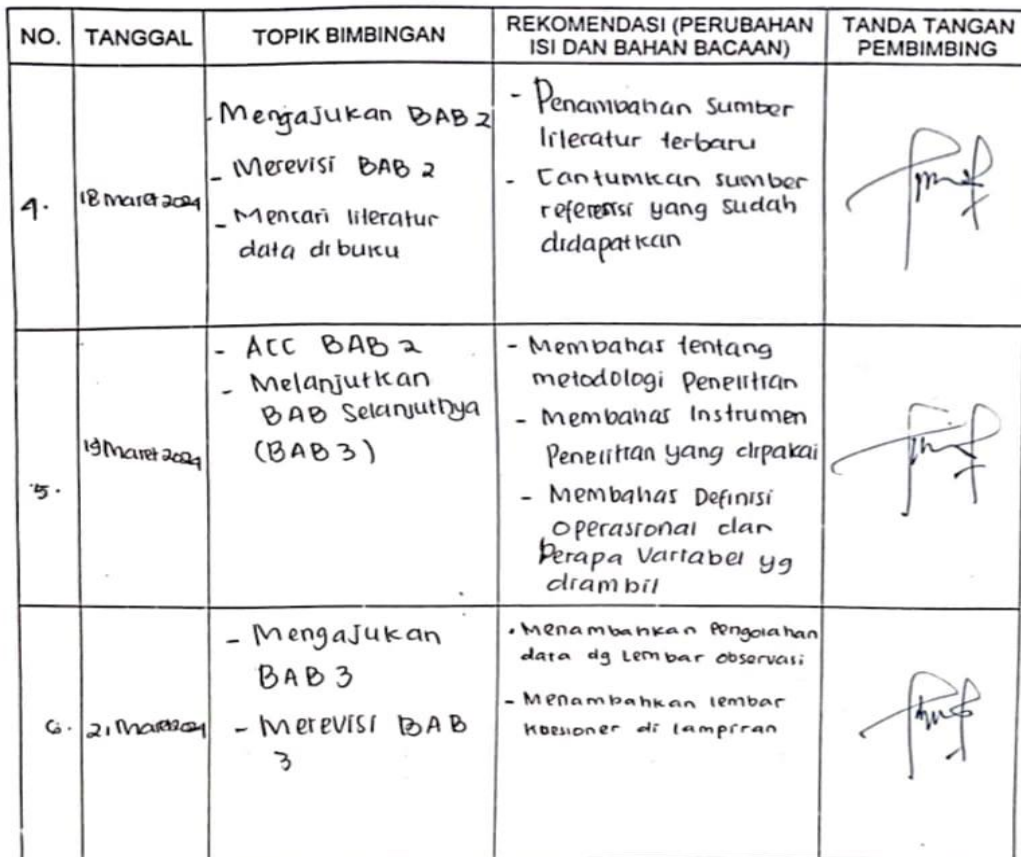 NO. TANGGAL TOPIK BIMBINGAN REKOMENDASI (PERUBAHAN ISI DAN BAHAN BACAAN) TANDA TANGAN PEMBIMBING
4. 18 Maret 2024
- Mengajukan BAB 2
- Merevisi BAB 2
- Mencari literatur
data dibuku
- Penambahan Sumber
literatur terbaru
- Cantumkan sumber
referensi yang sudah
didapatkan
5. 19 Maret 2024
- ACC BAB 2
- Melanjutkan
BAB Selanjutnya
(BAB 3)
- Membahas tentang
metodologi Penelitian
- Membahas Instrumen
Penelitian yang dipakai
- Membahas Definisi
operasional dan
Berapa Variabel yg
diambil
6. 21 Maret 2024
- Mengajukan
BAB 3
- Merevisi BAB
3
- Menambahkan Pengolahan
data dg Lembar observasi
- Menambahkan lembar
koesioner di lampiran